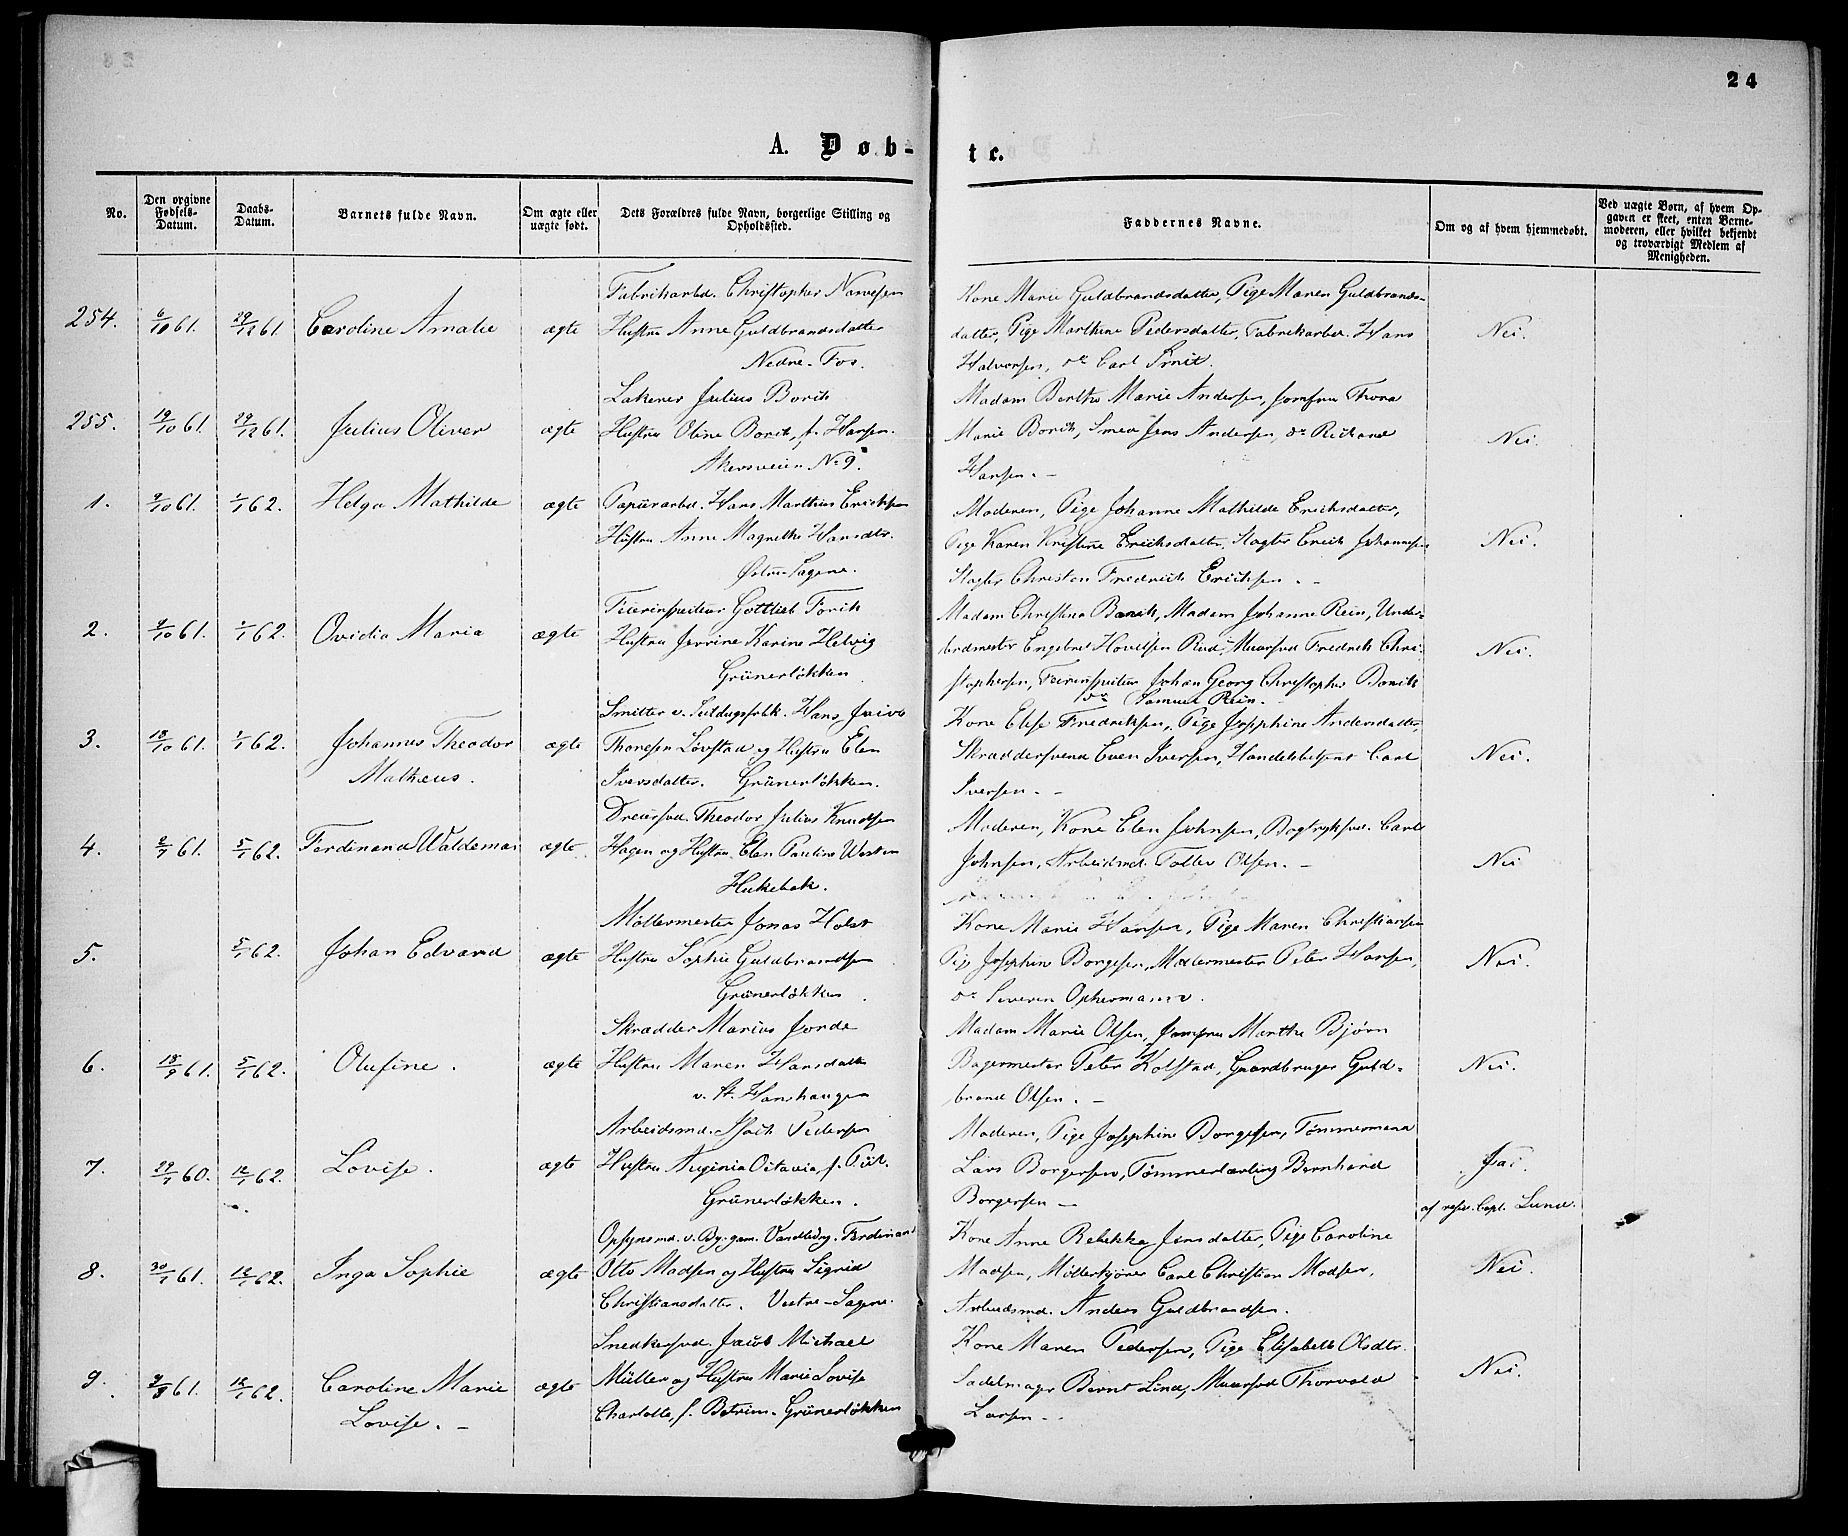 24
A. Døb-
te.
No.
Den opgivne Fødsels-Datum.
Daabs-Datum.
Barnets fulde Navn.
Om ægte eller uægte født.
Dets Forældres fulde Navn, borgerlige Stilling og Opholdssted.
Faddernes Navne.
Om og af hvem hjemmedøbt.
Ved uægte Børn, af hvem Opgaven er skeet, enten Barnemoderen, eller hvilket bekjendt og troværdigt Medlem af Menigheden.
Fabrikarbd. Christopher Narvesen
Kone Marie Guldbrandsdatter, Pige Maren Guldbrands-
254. 6/10 61. 29/12 61 Caroline Amalie ægte Hustru Anne Guldbrandsdatter
datter, Pige Marthine Pedersdatter, Fabrikarbd. Hans Nei.
Nedre-Fos.
Halvorsen, do Carl
Julius Borch
Madam Berthe Marie Andersen, Jomfru Thora
255. 19/10 61. 29/12 61. Julius Oliver ægte Hustru Oline Borch, f. Hansen.
Marie Borch, Smed Jens Andersen, do Richard Nei.
Akersveien No 9.
Hansen. -
1. 9/10 61. 1/1 62. Helga Mathilde ægte Papirarbd. Hans Marthius Ericksen
Moderen, Pige Johanne Mathilde Ericksdatter,
Hustru Anne Magrethe Hansdtr.
Pige Karen Kristine Ericksdatter, Slagter Erick Johannesen Nei.
Østre-Sagene.
Slagter Christen Fredrick Ericksen. -
Gottlieb
Madam Christina Barth, Madam Johanne Rein, Under-
2. 9/10 61. 1/1 62. Ovidia Maria ægte Hustru Karine Helvig
Engebret Rud, Muursvd Fredrik Chri- Nei.
Grünerløkken
stophersen, Johan Georg Christopher
do Samuel Rein. -
Hans Jacob
Kone Elise Fredriksen, Pige Josephine Andersdatter,
3. 18/10 61. 1/1 62. Johannes Theodor ægte Thoresen Løvstad og Hustru Elen
Skræddersvend Even Iversen, Handelsbetjent Carl Nei.
Matheus.
Iversdatter. Grünerløkken.
Iversen. -
Dreiersvd. Theodor Julius Knudsen
Moderen, Kone Elen Johnsen, Bogtryksvd. Carl
4. 2/7 61. 5/1 62. Ferdinand Waldemar ægte Hagen og Hustru Elen Pauline Westen
Johnsen, Arbeidsmd. Tollev Olsen. - Nei
Hukebak.
Møllermester Jonas Holst
Kone Marie Hansen, Pige Maren Christiansen
5. 5/1 62. Johan Edvard ægte Hustru Sophie Guldbrandsen
Pige Josephine Borgesen, Malermester Peter Hansen, Nei.
Grünerløkken
do Severin
Skrædder Marius Jorde
Madam Marie Olsen, Jomfru Marthe Bjørn
6. 18/9 61. 5/1 62. Olufine. ægte Hustru Maren Hansdatter
Bagermester Peter Kolstad, Gaardbruger Guld- Nei.
v. St. Hanshaugen
brand Olsen. -
Arbeidsmd. Isach Pedersen
Moderen, Pige Josephine Borgesen, Tømmermand
7. 29/7 60. 12/1 62. Lovise. ægte Hustru Octavia, f.
Lars Borgersen, Tømmerlærling Bernhard Ja.
Grünerløkken.
Borgersen - af Lund.
Opsynsmd. v. Ferdinand
Kone Anne Rebekka Jensdatter, Pige Caroline
8. 30/1 61. 12/1 62. Inga Sophie ægte Otto Madsen og Hustru Sigrid
Madsen, Møllerkjører Carl Christian Madsen, Nei.
Christiansdatter. Vestre-Sagene.
Arbeidsmd. Anders Guldbrandsen.
Snedkersvd. Jacob Michael
Kone Maren Pedersen, Pige Elisabeth Olsdtr.
9. 9/8 61. 12/1 62. Caroline Marie ægte Müller og Hustru Marie Lovise
Sadelmager Bernt Lind, Muursvd Thorvald Nei.
Lovise. -
Charlotte, f. Grünerløkken
Larsen -